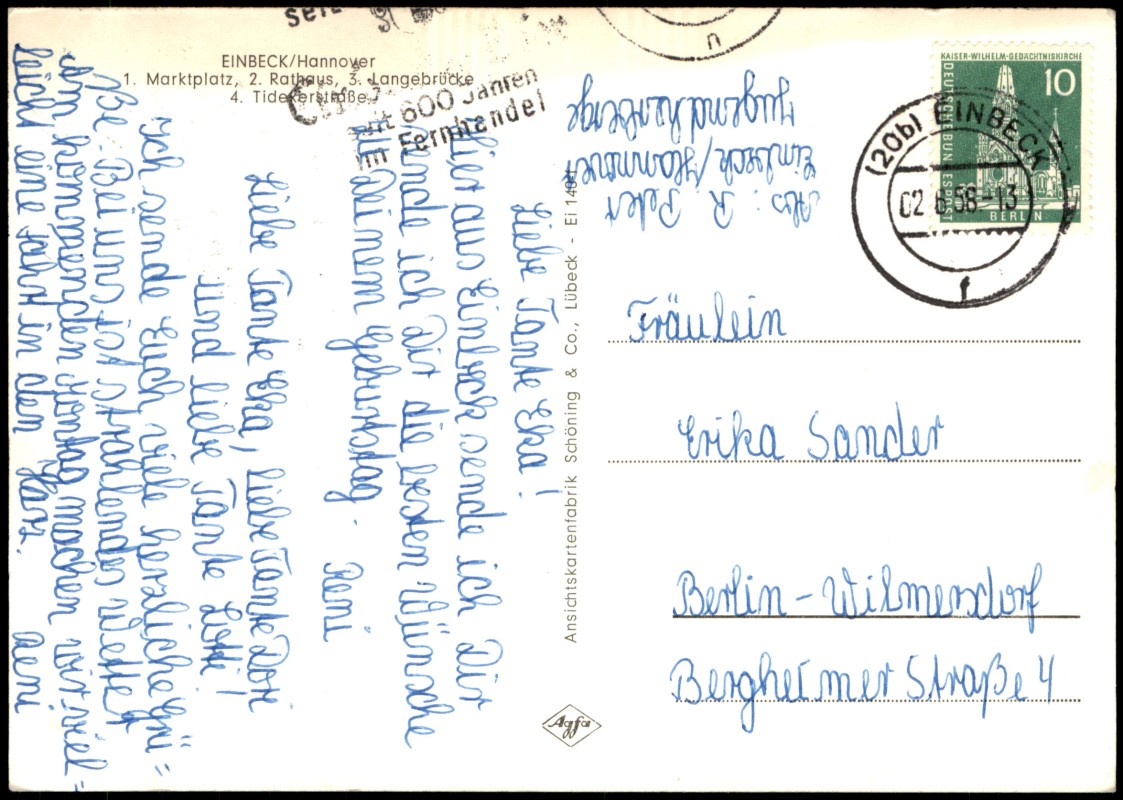 EINBECK/Hannover
1. Marktplatz, 2. Rathaus, 3. Langebrücke
4. Tidexerstraße
seit
seit 600 Jahren
im Fernhandel
n
Liebe Tante Eka!
Hier aus Einbeck sende ich Dir
sende ich Dir die besten Wünsche
zu Deinem Geburtstag.
Reni
Liebe Tante Eka, liebe Tante Dor
und liebe Tante Lotte!
Ich sende Euch viele herzliche Grü=
ße. Bei uns ist strahlendes Wetter
Am kommenden Montag machen wir viel=
leicht eine Fahrt in den Harz.
Reni
Ansichtskartenfabrik Schöning & Co., Lübeck - Ei 140
Agfa
Abs: R. Peters
Einbeck/Hannover
Jugendherberge
KAISER-WILHELM-GEDÄCHTNISKIRCHE
DEUTSCHE BUNDESPOST
10
BERLIN
(20b) EINBECK
02.6.58-13
f
Fräulein
Erika Sander
Berlin-Wilmersdorf
Bergheimer Straße 4